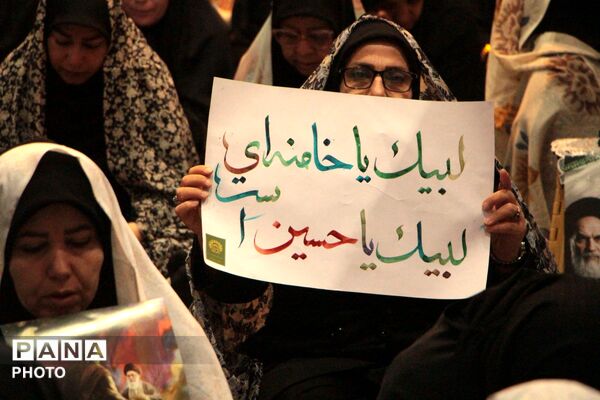 لبیك یا خامنه‌ای
لبیك یا حسین است
PANA
PHOTO